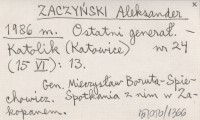 ZACZYŃSKI Aleksander
1986 m. Ostatni generał. -
Katolik (Katowice) nr 24
(15 VI): 13.
Gen. Mieczysław Boruta-Spie-
chowicz. Spotkania z nim w Za-
kopanem.
/1366